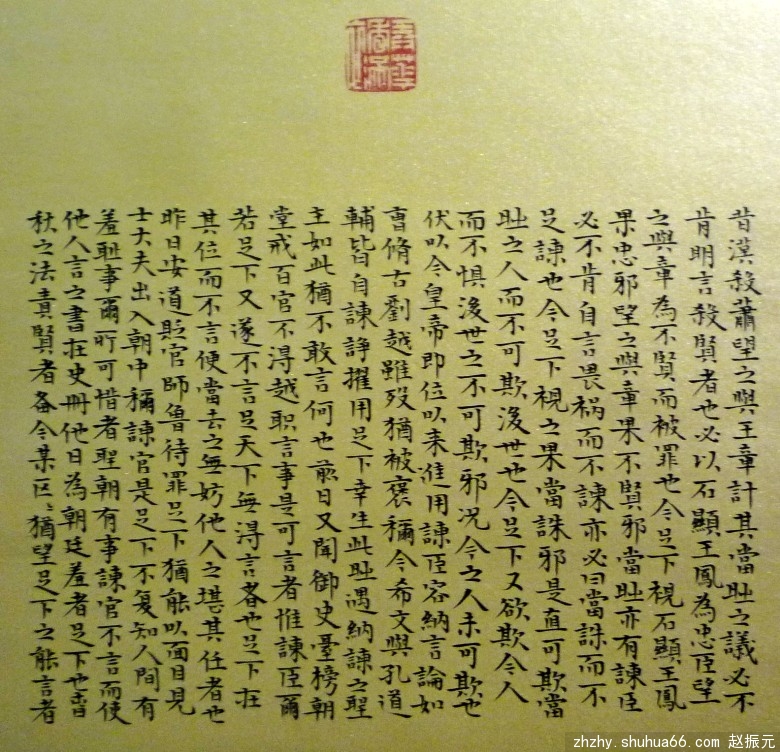 昔漢殺蕭望之與王章計其當時之議必不
肯明言殺賢者也必以石顯王鳳為忠臣望
之與章為不賢而被罪也今足下視石顯王鳳
果忠邪望之與章果不賢邪當時亦有諫臣
必不肯自言畏禍而不諫亦必曰當誅而不
足諫也今足下視之果當誅邪是直可欺當
時之人而不可欺後世也今足下又欲欺今人
而不惧後世之不可欺邪况今之人未可欺也
伏以今皇帝即位以来進用諫臣容納言論如
曹脩古劉越雖歿猶被褒稱今希文與孔道
輔皆自諫諍擢用足下幸生此時遇納諫之聖
主如此猶不敢言何也前日又聞御史臺榜朝
堂戒百官不得越职言事是可言者惟諫臣爾
若足下又遂不言是天下無得言者也足下在
其位而不言便當去之無妨他人之堪其任者也
昨日安道貶官師魯待罪足下猶能以面目見
士大夫出入朝中稱諫官是足下不复知人間有
羞耻事爾所可惜者聖朝有事諫官不言而使
他人言之書在史冊他日為朝廷羞者足下也春
秋之法責賢者备今某区〻猶望足下之能言者
zhzhy.shuhua66.com 赵振元